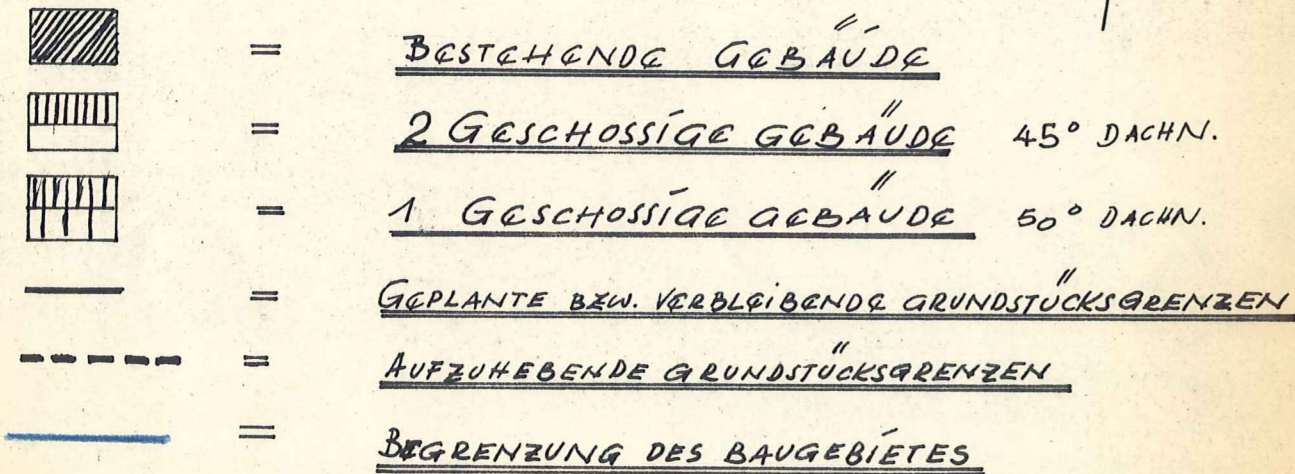 = BESTEHENDE GEBÄUDE
= 2 GESCHOSSIGE GEBÄUDE 45° DACHN.
= 1 GESCHOSSIGE GEBÄUDE 50° DACHN.
= GEPLANTE BZW. VERBLEIBENDE GRUNDSTÜCKSGRENZEN
= AUFZUHEBENDE GRUNDSTÜCKSGRENZEN
= BEGRENZUNG DES BAUGEBIETES